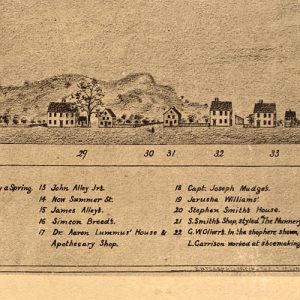 29 30 31 32 33
y a Spring. 13 John Alley Jrs. 18 Capt. Joseph Mudges.
14 Now Summer St. 19 Jerusha Williams'
15 James Alleys. 20 Stephen Smiths House.
16 Simeon Breeds. 21 S. Smiths Shop, styled "The Nunnery
17 Dr. Aaron Lummus' House & 22 G.W. Olivers. In the shop here shown,
Apothecary Shop. L. Garrison worked at shoemaking